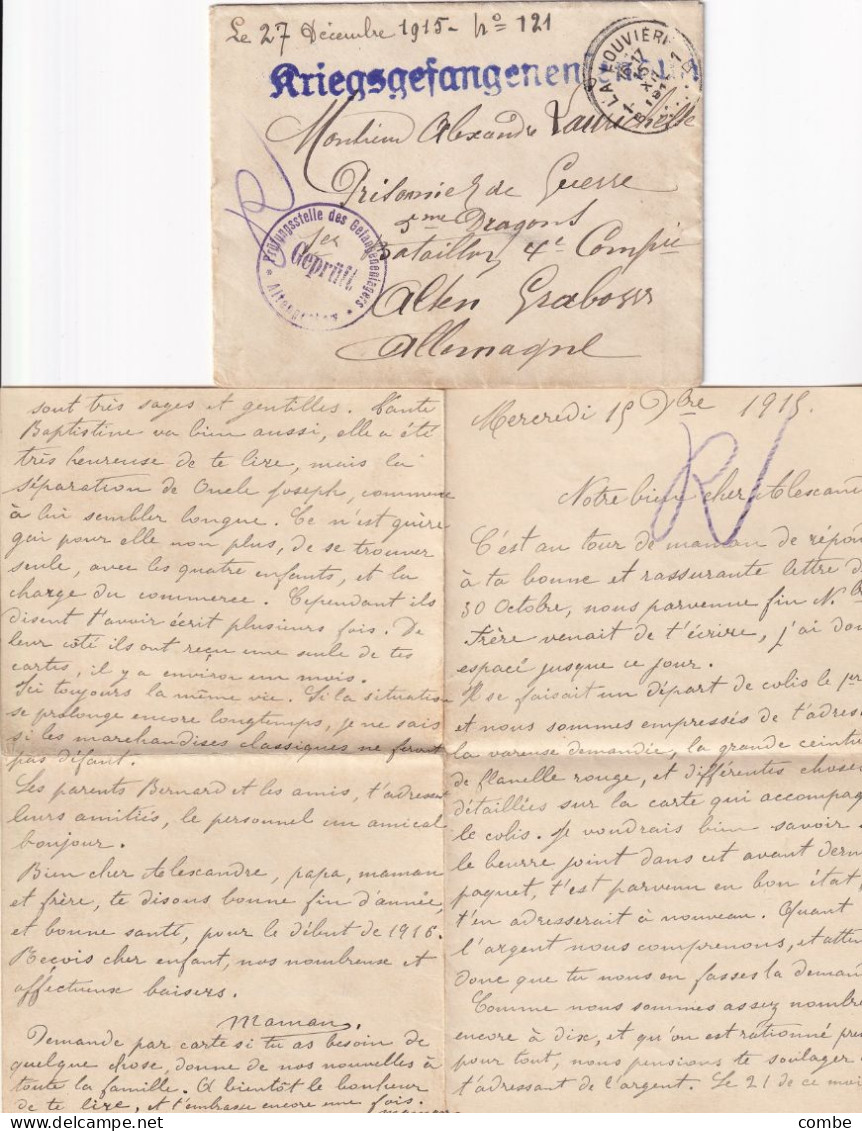 Le 27 Décembre 1915 - No 121
Kriegsgefangenen
LA LOUVIÈRE
Monsieur Alexandre
Prisonnier de Guerre
5me Dragons
1er Bataillon 4e Compie
Alten Grabow
Allemagne
Prüfungsstelle des Gefangenenlagers
Geprüft
sont très sages et gentilles. Tante
Baptistine va bien aussi, elle a été
très heureuse de te lire, mais la
séparation de Oncle Joseph, commence
à lui sembler longue. Ce n'est guère
gai pour elle non plus, de se trouver
seule, avec les quatre enfants, et la
charge du commerce. Cependant ils
disent t'avoir écrit plusieurs fois. De
leur côté ils ont reçu une seule de tes
cartes, il y a environ un mois.
Ici toujours la même vie. Si la situation
se prolonge encore longtemps, je ne sais
si les marchandises classiques ne feront
pas défaut.
Les parents Bernard et les amis, t'adressent
leurs amitiés, le personnel un amical
bonjour.
Bien cher Alexandre, papa, maman
et frère, te disons bonne fin d'année,
et bonne santé, pour le début de 1916.
Reçois cher enfant, nos nombreux et
affectueux baisers.
Maman.
Demande par carte si tu as besoin de
quelque chose, donne de nos nouvelles à
toute la famille. A bientôt le bonheur
de te lire, et t'embrasse encore une fois.
maman
Mercredi 15 Xbre 1915.
Notre bien cher Alexand
C'est au tour de maman de répon
à ta bonne et rassurante lettre d
30 Octobre, nous parvenue fin Nbr
Frère venait de t'écrire, j'ai don
espacé jusque ce jour.
Il se faisait un départ de colis le pr
et nous sommes empressés de t'adres
la vareuse demandée, la grande ceintu
de flanelle rouge, et différentes choses
détaillées sur la carte qui accompag
le colis. Je voudrais bien savoir
le beurre joint dans cet avant dern
paquet, t'est parvenu en bon état,
t'en adresserait à nouveau. Quant
l'argent nous comprenons, et atten
donc que tu nous en fasses la deman
Comme nous sommes assez nombre
encore à dix, et qu'on est rationné pre
pour tout, nous pensions te soulager
t'adressant de l'argent. Le 21 de ce moi
combe
delcampe.net